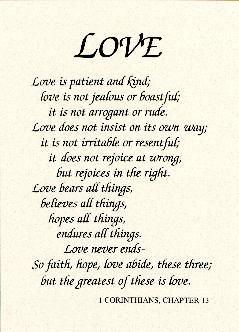 LOVE
Love is patient and kind;
love is not jealous or boastful;
it is not arrogant or rude.
Love does not insist on its own way;
it is not irritable or resentful;
it does not rejoice at wrong,
but rejoices in the right.
Love bears all things,
believes all things,
hopes all things,
endures all things.
Love never ends-
So faith, hope, love abide, these three;
but the greatest of these is love.
1 CORINTHIANS, CHAPTER 13